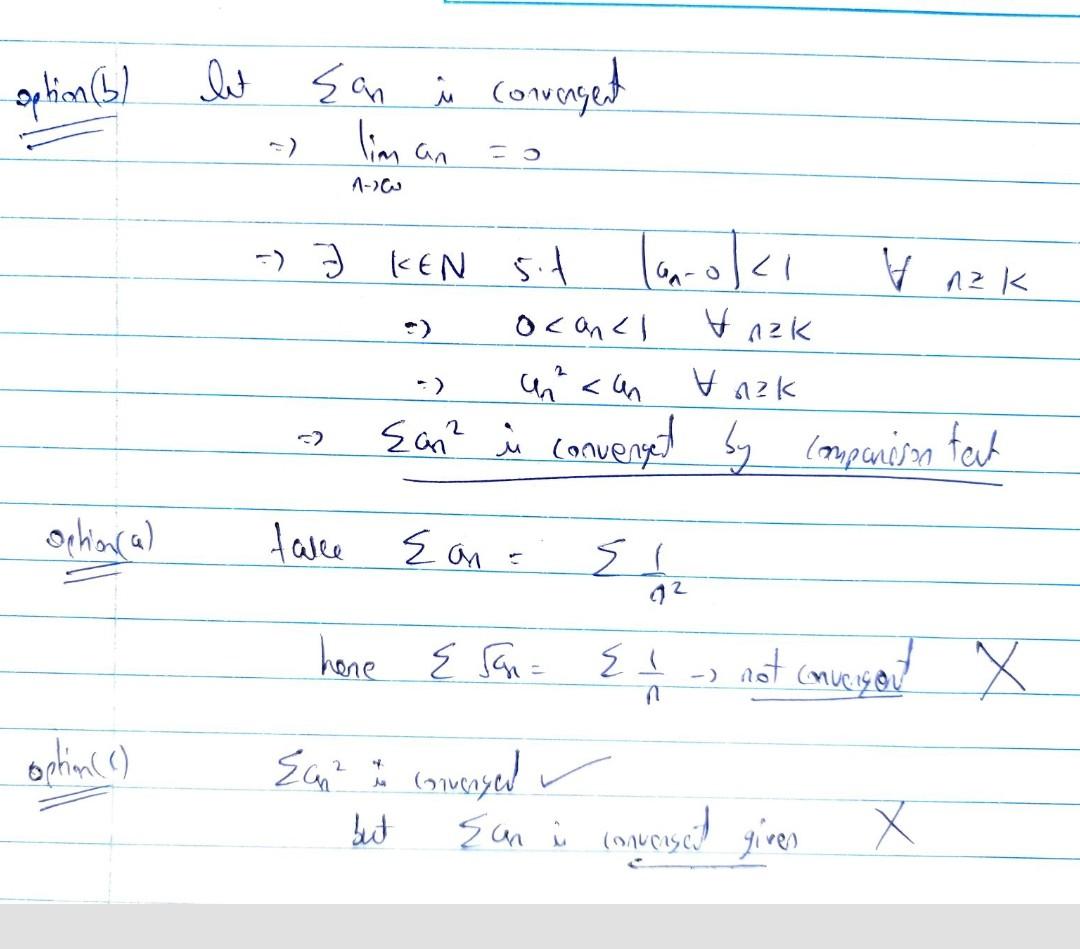 option(b) let Σ an is convergent
=) lim an = 0
n->∞
=) ∃ K∈N s.t |an-0|<1 ∀ n≥K
=) 0<an<1 ∀ n≥K
=) an² < an ∀ n≥K
=) Σan² is convergent by comparison test
option(a) take Σ an = Σ 1/n²
here Σ √an = Σ 1/n -> not convergent X
option(c) Σan² is convergent ✓
but Σan is convergent given X